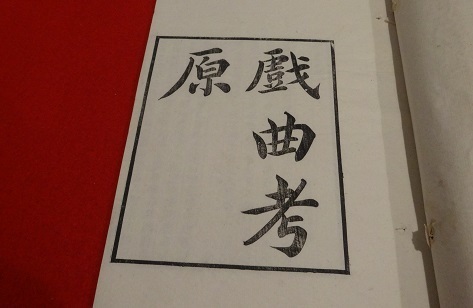 戲曲考
原